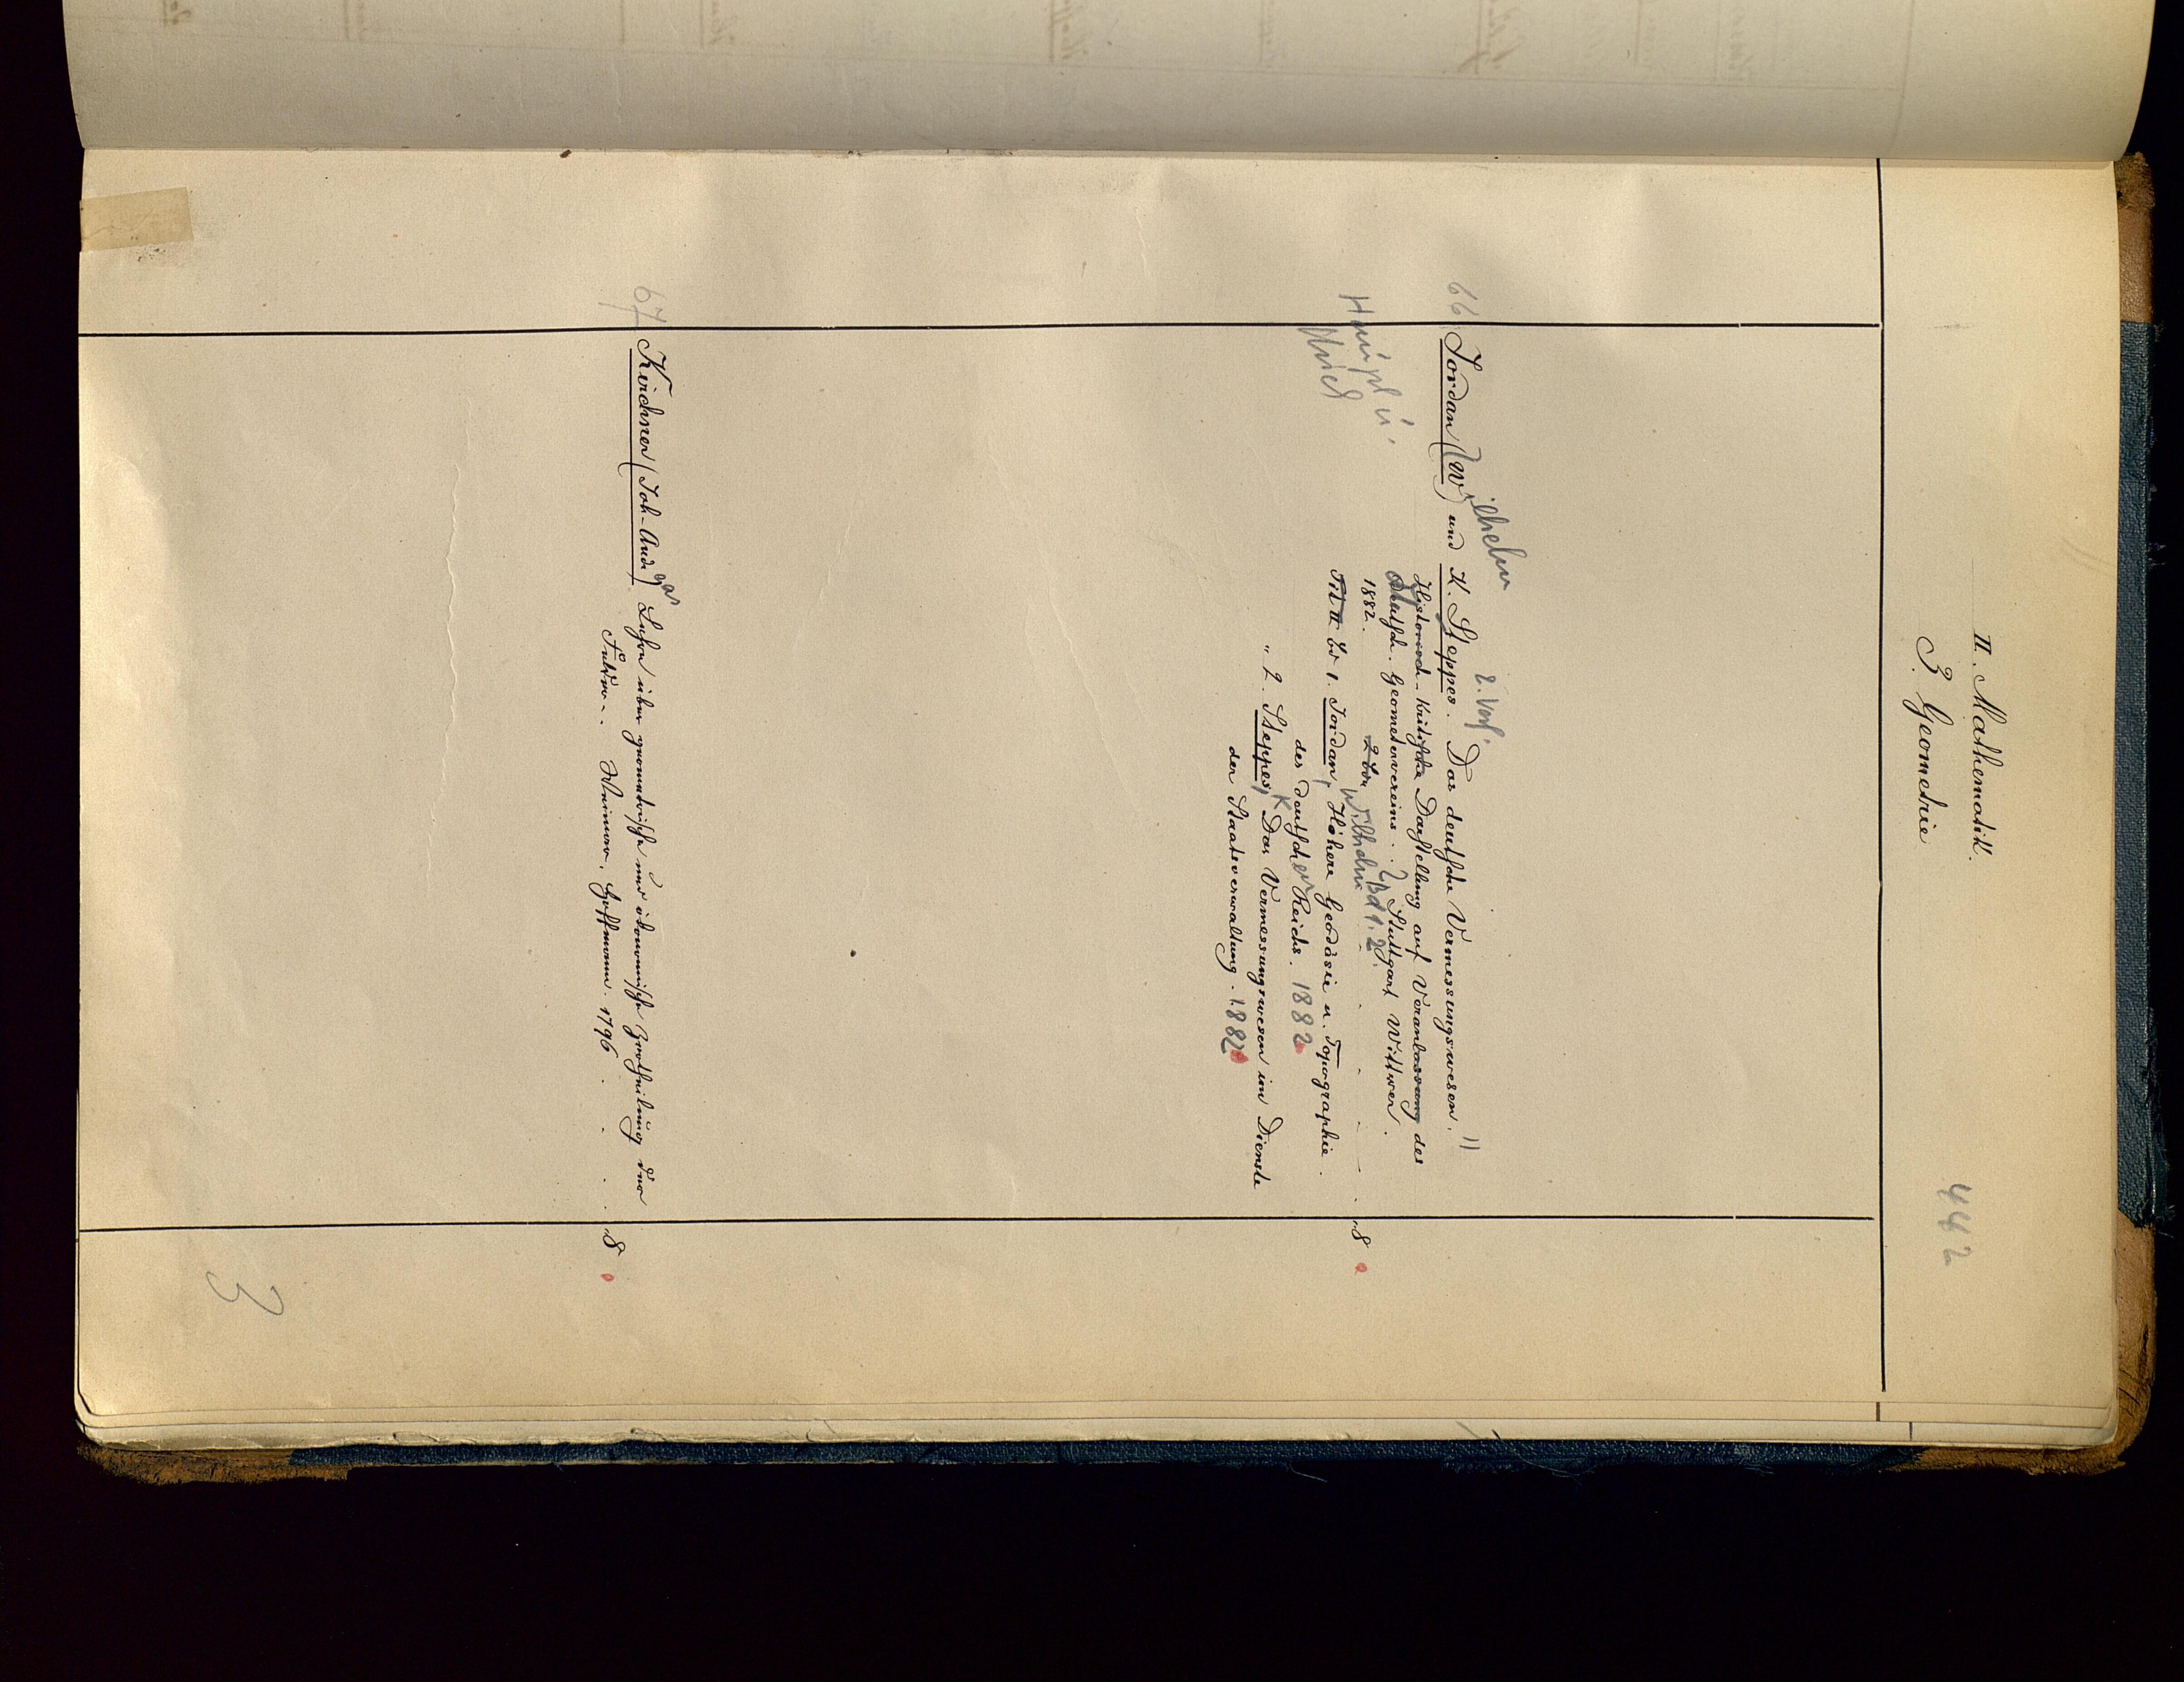 II. Mathematik.
3. Geometrie
442
66 Jordan (Wilhelm) und K. Steppes. Das deutsche Vermessungswesen.
2. Verf.
Historisch-kritische Darstellung auf Veranlassung des
Deutsch. Geometervereins . . Stuttgart Wittwer.
1882. 2 Bde Bd 1. 2. 8
Haupt u.
Tit II Bd 1. Jordan, Wilhelm Höhere Geodäsie u. Topographie
des deutschen Reichs. 1882
" 2. Steppes, K Das Vermessungswesen im Dienste
der Staatsverwaltung. 1882
67 Kirchner (Joh. Andreas) Lehre über geometrische und ökonomische Zertheilung der
Felder . . Weimar, Hoffmann. 1796 . . . . 8
3